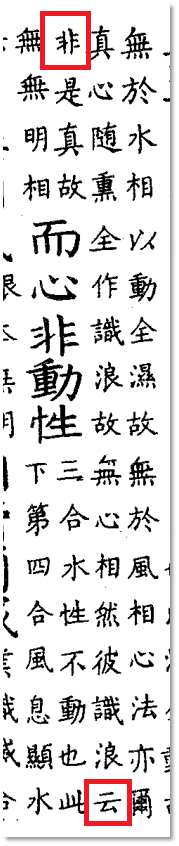 無於水相以動全濕故無於風相心法亦爾
真心随熏全作識浪故無心相然彼識浪云
非是真故
無無明相
而心非動性
三合水性不動也此
下第四合風息顯水